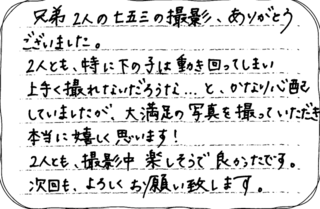 兄弟2人の七五三の撮影、ありがとう
ございました。
2人とも、特に下の子は動き回ってしまい
上手く撮れないだろうな…と、かなり心配
していましたが、大満足の写真を撮っていただき
本当に嬉しく思います!
2人とも、撮影中 楽しそうで良かったです。
次回も、よろしくお願い致します。